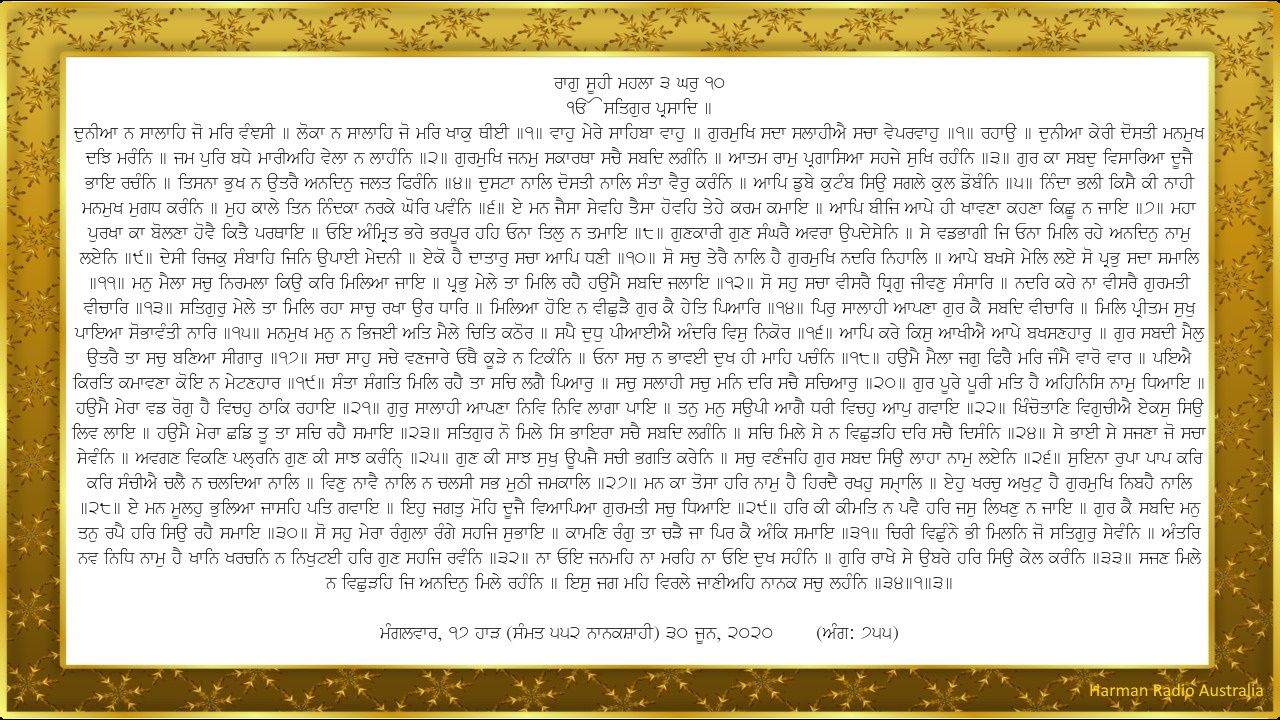 ਰਾਗੁ ਸੂਹੀ ਮਹਲਾ ੩ ਘਰੁ ੧੦
ੴ ਸਤਿਗੁਰ ਪ੍ਰਸਾਦਿ ॥
ਦੁਨੀਆ ਨ ਸਾਲਾਹਿ ਜੋ ਮਰਿ ਵੰਞਸੀ ॥ ਲੋਕਾ ਨ ਸਾਲਾਹਿ ਜੋ ਮਰਿ ਖਾਕੁ ਥੀਈ ॥੧॥ ਵਾਹੁ ਮੇਰੇ ਸਾਹਿਬਾ ਵਾਹੁ ॥ ਗੁਰਮੁਖਿ ਸਦਾ ਸਲਾਹੀਐ ਸਚਾ ਵੇਪਰਵਾਹੁ ॥੧॥ ਰਹਾਉ ॥ ਦੁਨੀਆ ਕੇਰੀ ਦੋਸਤੀ ਮਨਮੁਖ
ਦਝਿ ਮਰੰਨਿ ॥ ਜਮ ਪੁਰਿ ਬਧੇ ਮਾਰੀਅਹਿ ਵੇਲਾ ਨ ਲਾਹੰਨਿ ॥੨॥ ਗੁਰਮੁਖਿ ਜਨਮੁ ਸਕਾਰਥਾ ਸਚੈ ਸਬਦਿ ਲਗੰਨਿ ॥ ਆਤਮ ਰਾਮੁ ਪ੍ਰਗਾਸਿਆ ਸਹਜੇ ਸੁਖਿ ਰਹੰਨਿ ॥੩॥ ਗੁਰ ਕਾ ਸਬਦੁ ਵਿਸਾਰਿਆ ਦੂਜੈ
ਭਾਇ ਰਚੰਨਿ ॥ ਤਿਸਨਾ ਭੁਖ ਨ ਉਤਰੈ ਅਨਦਿਨੁ ਜਲਤ ਫਿਰੰਨਿ ॥੪॥ ਦੁਸਟਾ ਨਾਲਿ ਦੋਸਤੀ ਨਾਲਿ ਸੰਤਾ ਵੈਰੁ ਕਰੰਨਿ ॥ ਆਪਿ ਡੁਬੇ ਕੁਟੰਬ ਸਿਉ ਸਗਲੇ ਕੁਲ ਡੋਬੰਨਿ ॥੫॥ ਨਿੰਦਾ ਭਲੀ ਕਿਸੈ ਕੀ ਨਾਹੀ
ਮਨਮੁਖ ਮੁਗਧ ਕਰੰਨਿ ॥ ਮੁਹ ਕਾਲੇ ਤਿਨ ਨਿੰਦਕਾ ਨਰਕੇ ਘੋਰਿ ਪਵੰਨਿ ॥੬॥ ਏ ਮਨ ਜੈਸਾ ਸੇਵਹਿ ਤੈਸਾ ਹੋਵਹਿ ਤੇਹੇ ਕਰਮ ਕਮਾਇ ॥ ਆਪਿ ਬੀਜਿ ਆਪੇ ਹੀ ਖਾਵਣਾ ਕਹਣਾ ਕਿਛੂ ਨ ਜਾਇ ॥੭॥ ਮਹਾ
ਪੁਰਖਾ ਕਾ ਬੋਲਣਾ ਹੋਵੈ ਕਿਤੈ ਪਰਥਾਇ ॥ ਓਇ ਅੰਮ੍ਰਿਤ ਭਰੇ ਭਰਪੂਰ ਹਹਿ ਓਨਾ ਤਿਲੁ ਨ ਤਮਾਇ ॥੮॥ ਗੁਣਕਾਰੀ ਗੁਣ ਸੰਘਰੈ ਅਵਰਾ ਉਪਦੇਸੇਨਿ ॥ ਸੇ ਵਡਭਾਗੀ ਜਿ ਓਨਾ ਮਿਲਿ ਰਹੇ ਅਨਦਿਨੁ ਨਾਮੁ
ਲਏਨਿ ॥੯॥ ਦੇਸੀ ਰਿਜਕੁ ਸੰਬਾਹਿ ਜਿਨਿ ਉਪਾਈ ਮੇਦਨੀ ॥ ਏਕੋ ਹੈ ਦਾਤਾਰੁ ਸਚਾ ਆਪਿ ਧਣੀ ॥੧੦॥ ਸੋ ਸਚੁ ਤੇਰੈ ਨਾਲਿ ਹੈ ਗੁਰਮੁਖਿ ਨਦਰਿ ਨਿਹਾਲਿ ॥ ਆਪੇ ਬਖਸੇ ਮੇਲਿ ਲਏ ਸੋ ਪ੍ਰਭੁ ਸਦਾ ਸਮਾਲਿ
॥੧੧॥ ਮਨੁ ਮੈਲਾ ਸਚੁ ਨਿਰਮਲਾ ਕਿਉ ਕਰਿ ਮਿਲਿਆ ਜਾਇ ॥ ਪ੍ਰਭੁ ਮੇਲੇ ਤਾ ਮਿਲਿ ਰਹੈ ਹਉਮੈ ਸਬਦਿ ਜਲਾਇ ॥੧੨॥ ਸੋ ਸਹੁ ਸਚਾ ਵੀਸਰੈ ਧ੍ਰਿਗੁ ਜੀਵਣੁ ਸੰਸਾਰਿ ॥ ਨਦਰਿ ਕਰੇ ਨਾ ਵੀਸਰੈ ਗੁਰਮਤੀ
ਵੀਚਾਰਿ ॥੧੩॥ ਸਤਿਗੁਰੁ ਮੇਲੇ ਤਾ ਮਿਲਿ ਰਹਾ ਸਾਚੁ ਰਖਾ ਉਰ ਧਾਰਿ ॥ ਮਿਲਿਆ ਹੋਇ ਨ ਵੀਛੁੜੈ ਗੁਰ ਕੈ ਹੇਤਿ ਪਿਆਰਿ ॥੧੪॥ ਪਿਰੁ ਸਾਲਾਹੀ ਆਪਣਾ ਗੁਰ ਕੈ ਸਬਦਿ ਵੀਚਾਰਿ ॥ ਮਿਲਿ ਪ੍ਰੀਤਮ ਸੁਖੁ
ਪਾਇਆ ਸੋਭਾਵੰਤੀ ਨਾਰਿ ॥੧੫॥ ਮਨਮੁਖ ਮਨੁ ਨ ਭਿਜਈ ਅਤਿ ਮੈਲੇ ਚਿਤਿ ਕਠੋਰ ॥ ਸਪੈ ਦੁਧੁ ਪੀਆਈਐ ਅੰਦਰਿ ਵਿਸੁ ਨਿਕੋਰ ॥੧੬॥ ਆਪਿ ਕਰੇ ਕਿਸੁ ਆਖੀਐ ਆਪੇ ਬਖਸਣਹਾਰੁ ॥ ਗੁਰ ਸਬਦੀ ਮੈਲੁ
ਉਤਰੈ ਤਾ ਸਚੁ ਬਣਿਆ ਸੀਗਾਰੁ ॥੧੭॥ ਸਚਾ ਸਾਹੁ ਸਚੇ ਵਣਜਾਰੇ ਓਥੈ ਕੂੜੇ ਨ ਟਿਕੰਨਿ ॥ ਓਨਾ ਸਚੁ ਨ ਭਾਵਈ ਦੁਖ ਹੀ ਮਾਹਿ ਪਚੰਨਿ ॥੧੮॥ ਹਉਮੈ ਮੈਲਾ ਜਗੁ ਫਿਰੈ ਮਰਿ ਜੰਮੈ ਵਾਰੋ ਵਾਰ ॥ ਪਇਐ
ਕਿਰਤਿ ਕਮਾਵਣਾ ਕੋਇ ਨ ਮੇਟਣਹਾਰ ॥੧੯॥ ਸੰਤਾ ਸੰਗਤਿ ਮਿਲਿ ਰਹੈ ਤਾ ਸਚਿ ਲਗੈ ਪਿਆਰੁ ॥ ਸਚੁ ਸਲਾਹੀ ਸਚੁ ਮਨਿ ਦਰਿ ਸਚੈ ਸਚਿਆਰੁ ॥੨੦॥ ਗੁਰ ਪੂਰੇ ਪੂਰੀ ਮਤਿ ਹੈ ਅਹਿਨਿਸਿ ਨਾਮੁ ਧਿਆਇ ॥
ਹਉਮੈ ਮੇਰਾ ਵਡ ਰੋਗੁ ਹੈ ਵਿਚਹੁ ਠਾਕਿ ਰਹਾਇ ॥੨੧॥ ਗੁਰੁ ਸਾਲਾਹੀ ਆਪਣਾ ਨਿਵਿ ਨਿਵਿ ਲਾਗਾ ਪਾਇ ॥ ਤਨੁ ਮਨੁ ਸਉਪੀ ਆਗੈ ਧਰੀ ਵਿਚਹੁ ਆਪੁ ਗਵਾਇ ॥੨੨॥ ਖਿੰਚੋਤਾਣਿ ਵਿਗੁਚੀਐ ਏਕਸੁ ਸਿਉ
ਲਿਵ ਲਾਇ ॥ ਹਉਮੈ ਮੇਰਾ ਛਡਿ ਤੂ ਤਾ ਸਚਿ ਰਹੈ ਸਮਾਇ ॥੨੩॥ ਸਤਿਗੁਰ ਨੋ ਮਿਲੇ ਸਿ ਭਾਇਰਾ ਸਚੈ ਸਬਦਿ ਲਗੰਨਿ ॥ ਸਚਿ ਮਿਲੇ ਸੇ ਨ ਵਿਛੁੜਹਿ ਦਰਿ ਸਚੈ ਦਿਸੰਨਿ ॥੨੪॥ ਸੇ ਭਾਈ ਸੇ ਸਜਣਾ ਜੋ ਸਚਾ
ਸੇਵੰਨਿ ॥ ਅਵਗਣ ਵਿਕਣਿ ਪਲ੍ਹਰਨਿ ਗੁਣ ਕੀ ਸਾਝ ਕਰੰਨ੍ਹਿ ॥੨੫॥ ਗੁਣ ਕੀ ਸਾਝ ਸੁਖੁ ਊਪਜੈ ਸਚੀ ਭਗਤਿ ਕਰੇਨਿ ॥ ਸਚੁ ਵਣੰਜਹਿ ਗੁਰ ਸਬਦ ਸਿਉ ਲਾਹਾ ਨਾਮੁ ਲਏਨਿ ॥੨੬॥ ਸੁਇਨਾ ਰੁਪਾ ਪਾਪ ਕਰਿ
ਕਰਿ ਸੰਚੀਐ ਚਲੈ ਨ ਚਲਦਿਆ ਨਾਲਿ ॥ ਵਿਣੁ ਨਾਵੈ ਨਾਲਿ ਨ ਚਲਸੀ ਸਭ ਮੁਠੀ ਜਮਕਾਲਿ ॥੨੭॥ ਮਨ ਕਾ ਤੋਸਾ ਹਰਿ ਨਾਮੁ ਹੈ ਹਿਰਦੈ ਰਖਹੁ ਸਮ੍ਹਾਲਿ ॥ ਏਹੁ ਖਰਚੁ ਅਖੁਟੁ ਹੈ ਗੁਰਮੁਖਿ ਨਿਬਹੈ ਨਾਲਿ
॥੨੮॥ ਏ ਮਨ ਮੂਲਹੁ ਭੁਲਿਆ ਜਾਸਹਿ ਪਤਿ ਗਵਾਇ ॥ ਇਹੁ ਜਗਤੁ ਮੋਹਿ ਦੂਜੈ ਵਿਆਪਿਆ ਗੁਰਮਤੀ ਸਚੁ ਧਿਆਇ ॥੨੯॥ ਹਰਿ ਕੀ ਕੀਮਤਿ ਨ ਪਵੈ ਹਰਿ ਜਸੁ ਲਿਖਣੁ ਨ ਜਾਇ ॥ ਗੁਰ ਕੈ ਸਬਦਿ ਮਨੁ
ਤਨੁ ਰਪੈ ਹਰਿ ਸਿਉ ਰਹੈ ਸਮਾਇ ॥੩੦॥ ਸੋ ਸਹੁ ਮੇਰਾ ਰੰਗੁਲਾ ਰੰਗੇ ਸਹਜਿ ਸੁਭਾਇ ॥ ਕਾਮਣਿ ਰੰਗੁ ਤਾ ਚੜੈ ਜਾ ਪਿਰ ਕੈ ਅੰਕਿ ਸਮਾਇ ॥੩੧॥ ਚਿਰੀ ਵਿਛੁੰਨੇ ਭੀ ਮਿਲਨਿ ਜੋ ਸਤਿਗੁਰੁ ਸੇਵੰਨਿ ॥ ਅੰਤਰਿ
ਨਵ ਨਿਧਿ ਨਾਮੁ ਹੈ ਖਾਨਿ ਖਰਚਨਿ ਨ ਨਿਖੁਟਈ ਹਰਿ ਗੁਣ ਸਹਜਿ ਰਵੰਨਿ ॥੩੨॥ ਨਾ ਓਇ ਜਨਮਹਿ ਨਾ ਮਰਹਿ ਨਾ ਓਇ ਦੁਖ ਸਹੰਨਿ ॥ ਗੁਰਿ ਰਾਖੇ ਸੇ ਉਬਰੇ ਹਰਿ ਸਿਉ ਕੇਲ ਕਰੰਨਿ ॥੩੩॥ ਸਜਣ ਮਿਲੇ
ਨ ਵਿਛੁੜਹਿ ਜਿ ਅਨਦਿਨੁ ਮਿਲੇ ਰਹੰਨਿ ॥ ਇਸੁ ਜਗ ਮਹਿ ਵਿਰਲੇ ਜਾਣੀਅਹਿ ਨਾਨਕ ਸਚੁ ਲਹੰਨਿ ॥੩੪॥੧॥੩॥
ਮੰਗਲਵਾਰ, ੧੭ ਹਾੜ (ਸੰਮਤ ੫੫੨ ਨਾਨਕਸ਼ਾਹੀ) ੩੦ ਜੂਨ, ੨੦੨੦ (ਅੰਗ: ੭੫੫)
Harman Radio Australia